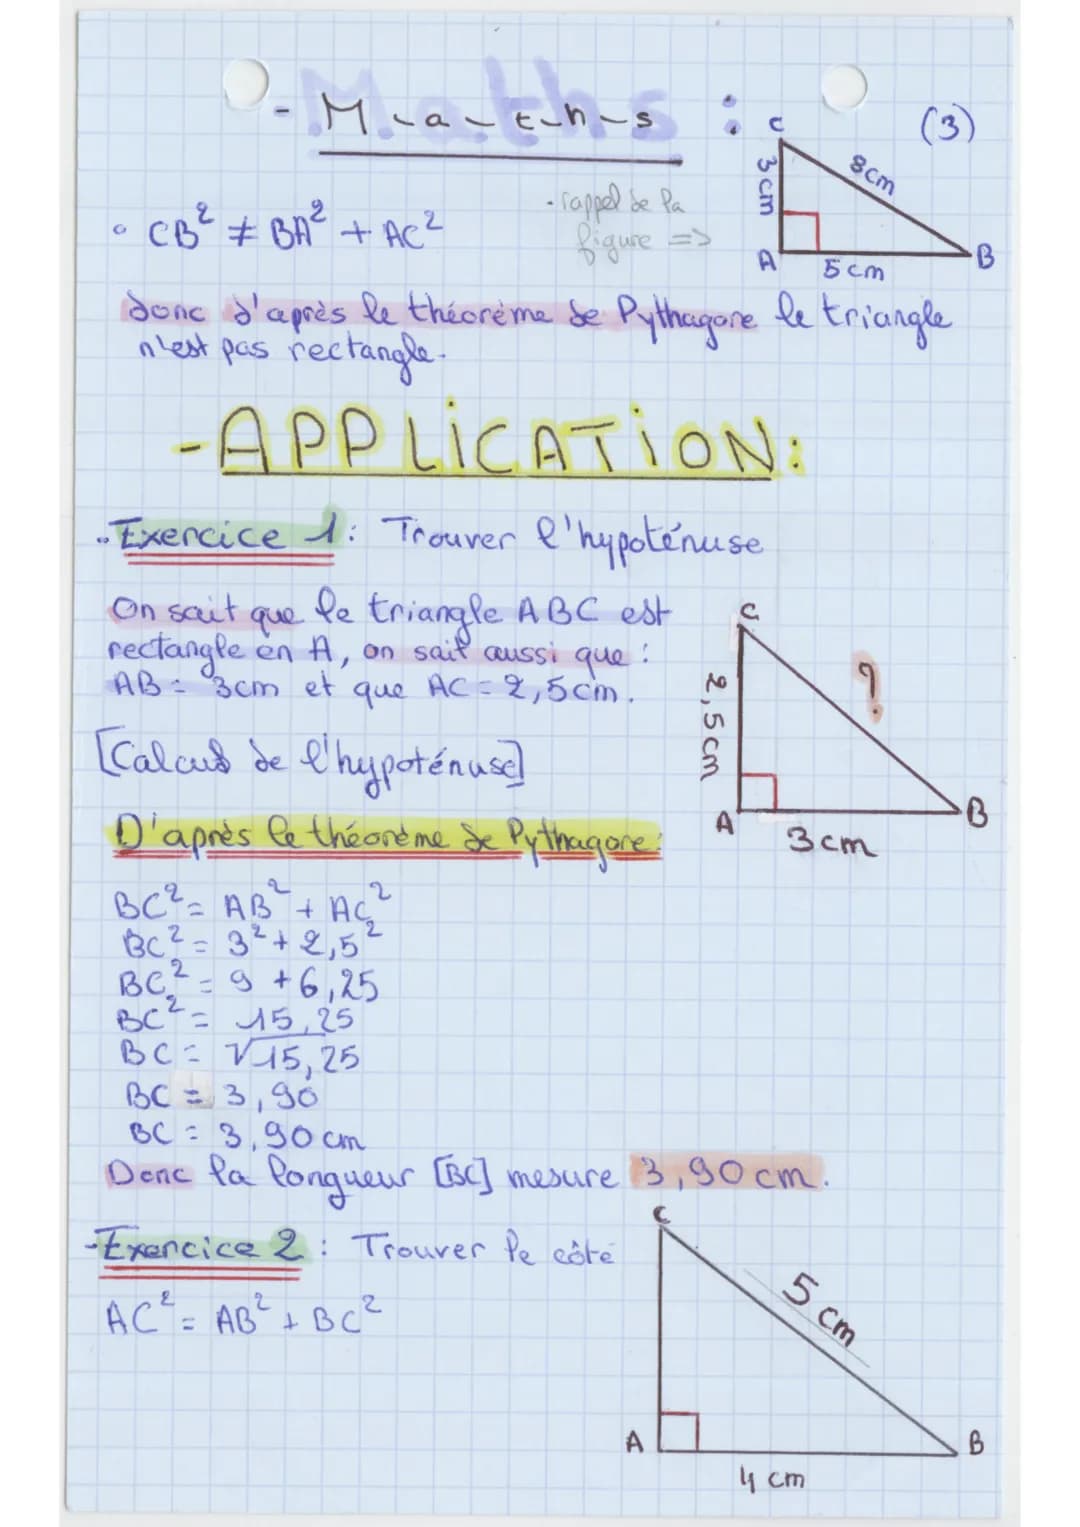 - M-a-t-h-s :
(3)
C
3cm
8cm
A
5cm
B
• CB² ≠ BA² + AC²
• rappel de la
figure =>
donc d'après le théorème de Pythagore le triangle
n'est pas rectangle.
- APPLiCATiON:
.. Exercice 1: Trouver l'hypoténuse
On sait que le triangle ABC est
rectangle en A, on sait aussi que :
AB = 3cm et que AC = 2,5cm.
C
?
2,5cm
A
3cm
B
[Calcul de l'hypoténuse]
D'après le théorème de Pythagore:
BC² = AB² + AC²
BC² = 3² + 2,5²
BC² = 9 + 6,25
BC² = 15,25
BC = √15,25
BC = 3,90
BC = 3,90 cm
Donc la longueur [BC] mesure 3,90 cm.
- Exercice 2 : Trouver le côté
AC² = AB² + BC²
C
5 cm
A
B
4 cm